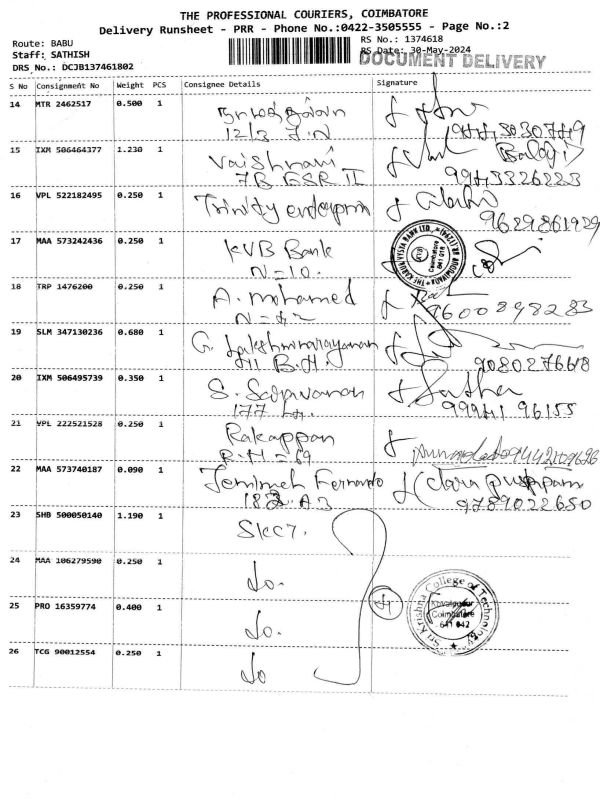 THE PROFESSIONAL COURIERS, COIMBATORE
Delivery Runsheet - PRR - Phone No.:0422-3505555 - Page No.:2
Route: BABU
Staff: SATHISH
DRS No.: DCJB137461802
RS No.: 1374618
RS Date: 30-May-2024
DOCUMENT DELIVERY
S No Consignment No Weight PCS Consignee Details Signature
14 MTR 2462517 0.500 1
12/3
15 IXM 506464377 1.230 1 Vaishnavi Balaji
7B GSR II 9943326223
16 VPL 522182495 0.250 1 Trinity enterprises
9629861929
17 MAA 573242436 0.250 1 KVB Bank
N=10.
THE KARUR VYSYA BANK LTD.,
Coimbatore
641 018
18 TRP 1476200 0.250 1 A. Mohamed
9600898283
19 SLM 347130236 0.680 1 G. Lakshminarayanan
B.H. 9080276618
20 IXM 506495739 0.350 1 S. Saravanan
177 99941 96155
21 VPL 222521528 0.250 1 Rakappan
22 MAA 573740187 0.090 1 Jemimeh Fernando Clara pushpam
182 A3 9789022650
23 SHB 500050140 1.190 1 SKCT.
24 MAA 106279590 0.250 1 do.
25 PRO 16359774 0.400 1 do.
Sri Krishna College of Technology
Kovaipudur
Coimbatore
641 042
26 TCG 90012554 0.250 1 do